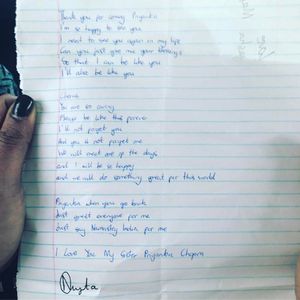 Thank you for coming Priyanka
I'm so happy to see you
I need to see you again in my life
Can you just give me your blessings
So that I can be like you
I'll also be like you
Chorus
You are so caring
Please be like this forever
I'll not forget you
And you is not forget me
We will meet one of the days
and I will be so happy
and we will do something great for this world
Priyanka when you go back
Just greet everyone for me
Just say Namaste India for me
I Love You My Sister Priyanka Chopra